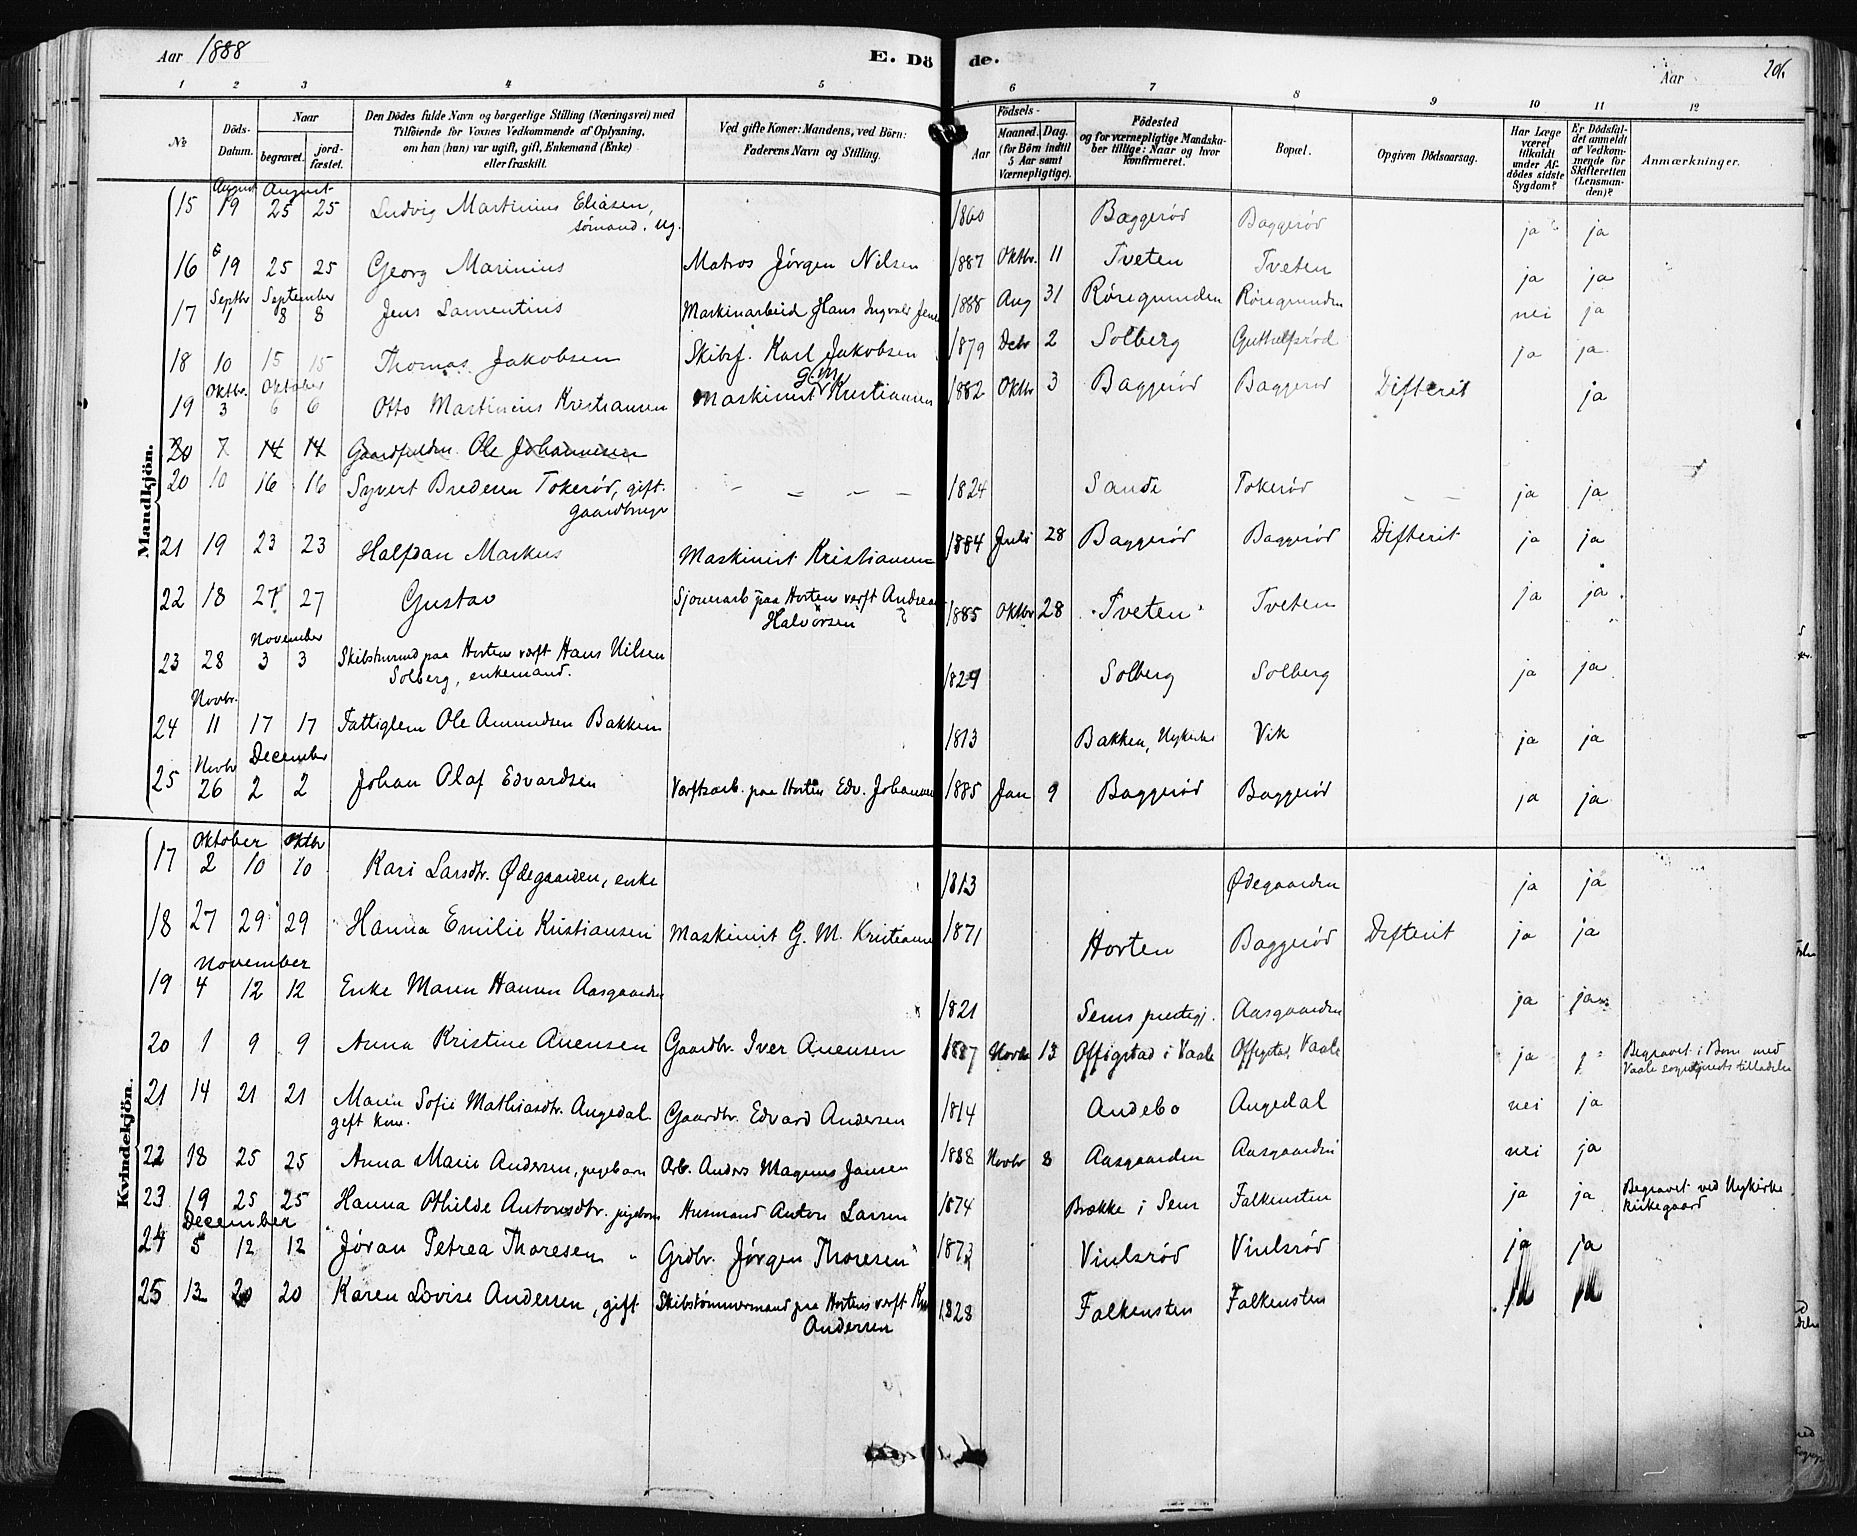 Aar 1888
E. Dö de.
Aar
206.
1 2 3 4 5 6 7 8 9 10 11 12
No
Döds-Datum.
Naar
begravet.
jord-fæstet.
Den Dödes fulde Navn og borgerlige Stilling (Næringsvei) med
Tilföiende for Voxnes Vedkommende af Oplysning,
om han (hun) var ugift, gift, Enkemand (Enke)
eller fraskilt.
Ved gifte Koner: Mandens, ved Börn:
Faderens Navn og Stilling.
Födsels-
Aar
Maaned. Dag.
(for Börn indtil
5 Aar samt
Værnepligtige).
Födested
og for værnepligtige Mandska-
ber tillige: Naar og hvor
konfirmeret.
Bopæl.
Opgiven Dödsaarsag.
Har Læge
været
tilkaldt
under Af-
dödes sidste
Sygdom?
Er Dödsfal-
det anmeldt
af Vedkom-
mende for
Skifteretten
(Lensman-
den)?
Anmærkninger.
Mandkjön.
August August
15 19 25 25 Ludvig Martinius Eliasen, 1860 Baggerød Baggerød ja ja
sømand, ug.
16 19 25 25 Georg Marinius Matros Jørgen Nilsen 1887 Oktbr. 11 Tveten Tveten ja ja
Septbr September
17 1 8 8 Jens Laurentius Maskinarbeid Hans Ingvald 1888 Aug 31 Røregrunden Røregrunden nei ja
18 10 15 15 Thomas Jakobsen Skibsf. Karl Jakobsen 1879 Debr 2 Solberg ja ja
Oktbr. Oktober G.M.
19 3 6 6 Otto Martinius Kristiansen Maskinist Kristiansen 1882 Oktbr 3 Baggerød Baggerød Difterit ja
20 7 14 14 Ole Johannesen
20 10 16 16 Syvert Bredesen Tokerød, gift. – – – – 1824 Sande Tokerød – – ja ja
gaardbruger
21 19 23 23 Halfdan Markus Maskinist Kristiansen 1884 Juli 28 Baggerød Baggerød Difterit ja ja
22 18 27 27 Gustav paa Horten verft Andreas 1885 Oktbr 28 Tveten Tveten ja ja
Halvorsen
November
23 28 3 3 paa Hortens verft Hans Nilsen Solberg Solberg ja ja
Solberg, enkemand.
Novbr.
24 11 17 17 Fattiglem Ole Amundsen Bakken 1813 Bakken, Nykirke Vik ja ja
Novbr December
25 26 2 2 Johan Olaf Edvardsen Værftsarb. paa Horten Edv. Johansen 1885 Jan 9 Baggerød Baggerød ja ja
Kvindekjön.
Oktober Oktbr
17 2 10 10 Kari Larsdtr. Ødegaarden, enke 1813 Ødegaarden ja ja
18 27 29 29 Hanna Emilie Kristiansen Maskinist G. M. Kristiansen 1871 Horten Baggerød Difterit ja ja
November
19 4 12 12 Enke Maren Hansen Aasgaarden 1821 Sems prestegj. Aasgaarden ja ja
20 1 9 9 Anna Kristine Auensen Gaardbr. Iver Auensen 1887 Novbr 13 Offigstad i Vaale Offigstad, Vaale ja Begravet i Borre med
Vaale sogneprests tilladelse
21 14 21 21 Maren Sofie Mathiasdtr. Augedal Gaardbr. Edvard Andersen 1814 Andebo Augedal nei ja
gift kone.
22 18 25 25 Anna Marie Andersen, pigebarn Arb. Anders Magnus Jansen 1888 Novbr 8 Aasgaarden Aasgaarden nei ja
23 19 25 25 Hanna Othilde Antonsdtr. pigebarn Husmand Anton Larsen 1874 Brække i Sem Falkensten ja ja Begravet ved Nykirke
Kirkegaard
December
24 5 12 12 Jøran Petrea Thoresen " Grdbr. Jørgen Thoresen 1873 Viulsrød Viulsrød ja ja
25 13 20 20 Karen Lovise Andersen, gift Skibstømmermand paa Hortens verft 1828 Falkensten Falkensten ja ja
Andersen